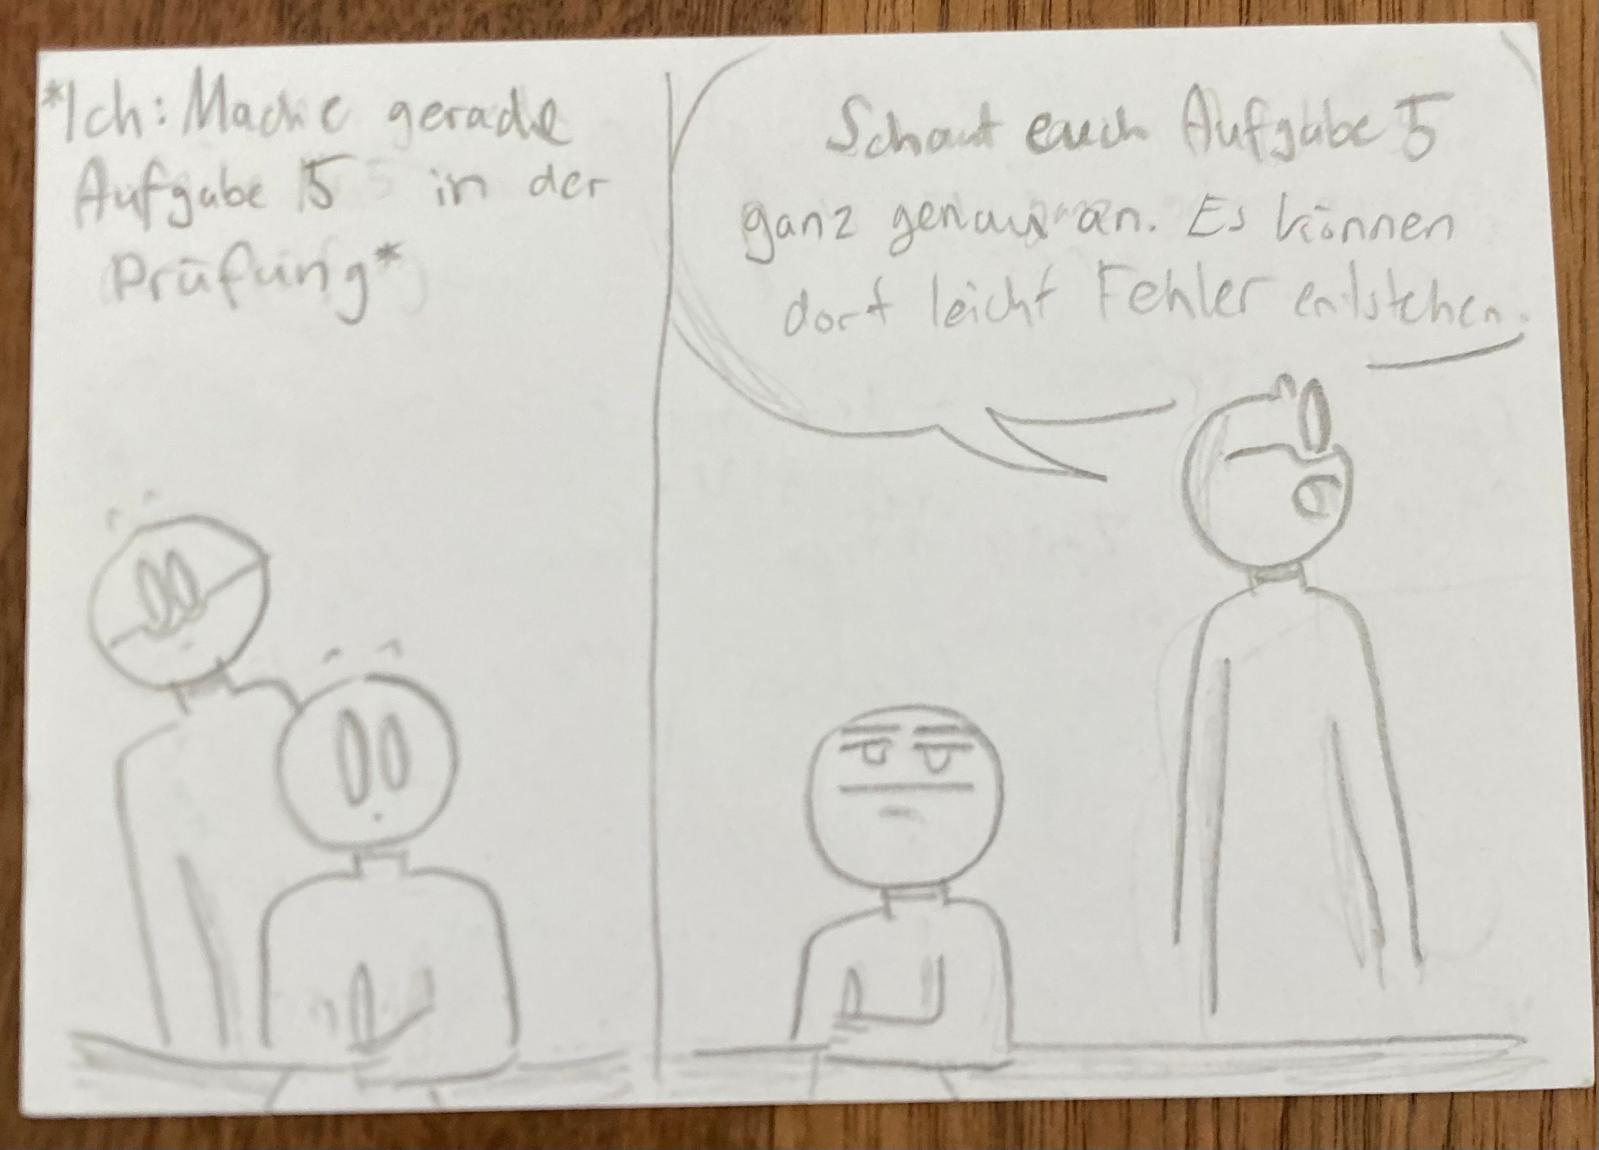 *Ich: Mache gerade
Aufgabe 5 in der
Prüfung*
Schaut euch Aufgabe 5
ganz genau an. Es können
dort leicht Fehler entstehen.